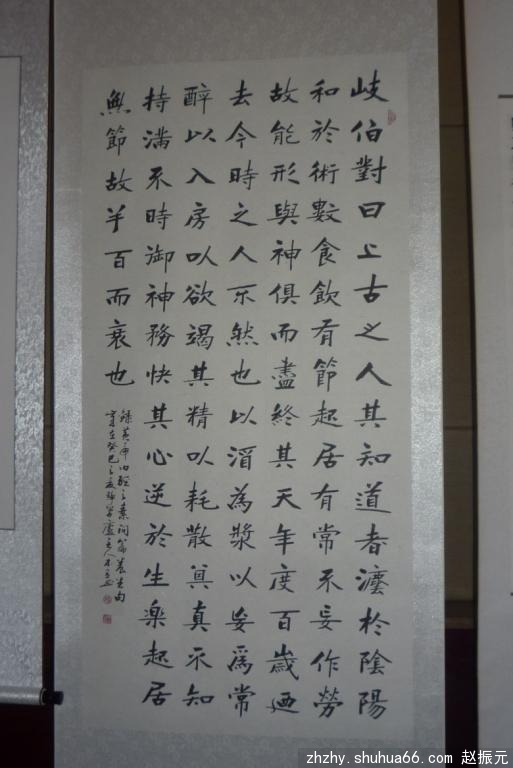 岐伯對曰上古之人其知道者灋於陰陽
和於術數食飲有節起居有常不妄作勞
故能形與神俱而盡終其天年度百歲廼
去今時之人不然也以酒為漿以妄爲常
醉以入房以欲竭其精以耗散其真不知
持滿不時御神務快其心逆於生樂起居
無節故半百而衰也
錄黃帝內經之素問篇養生句
zhzhy.shuhua66.com 赵振元